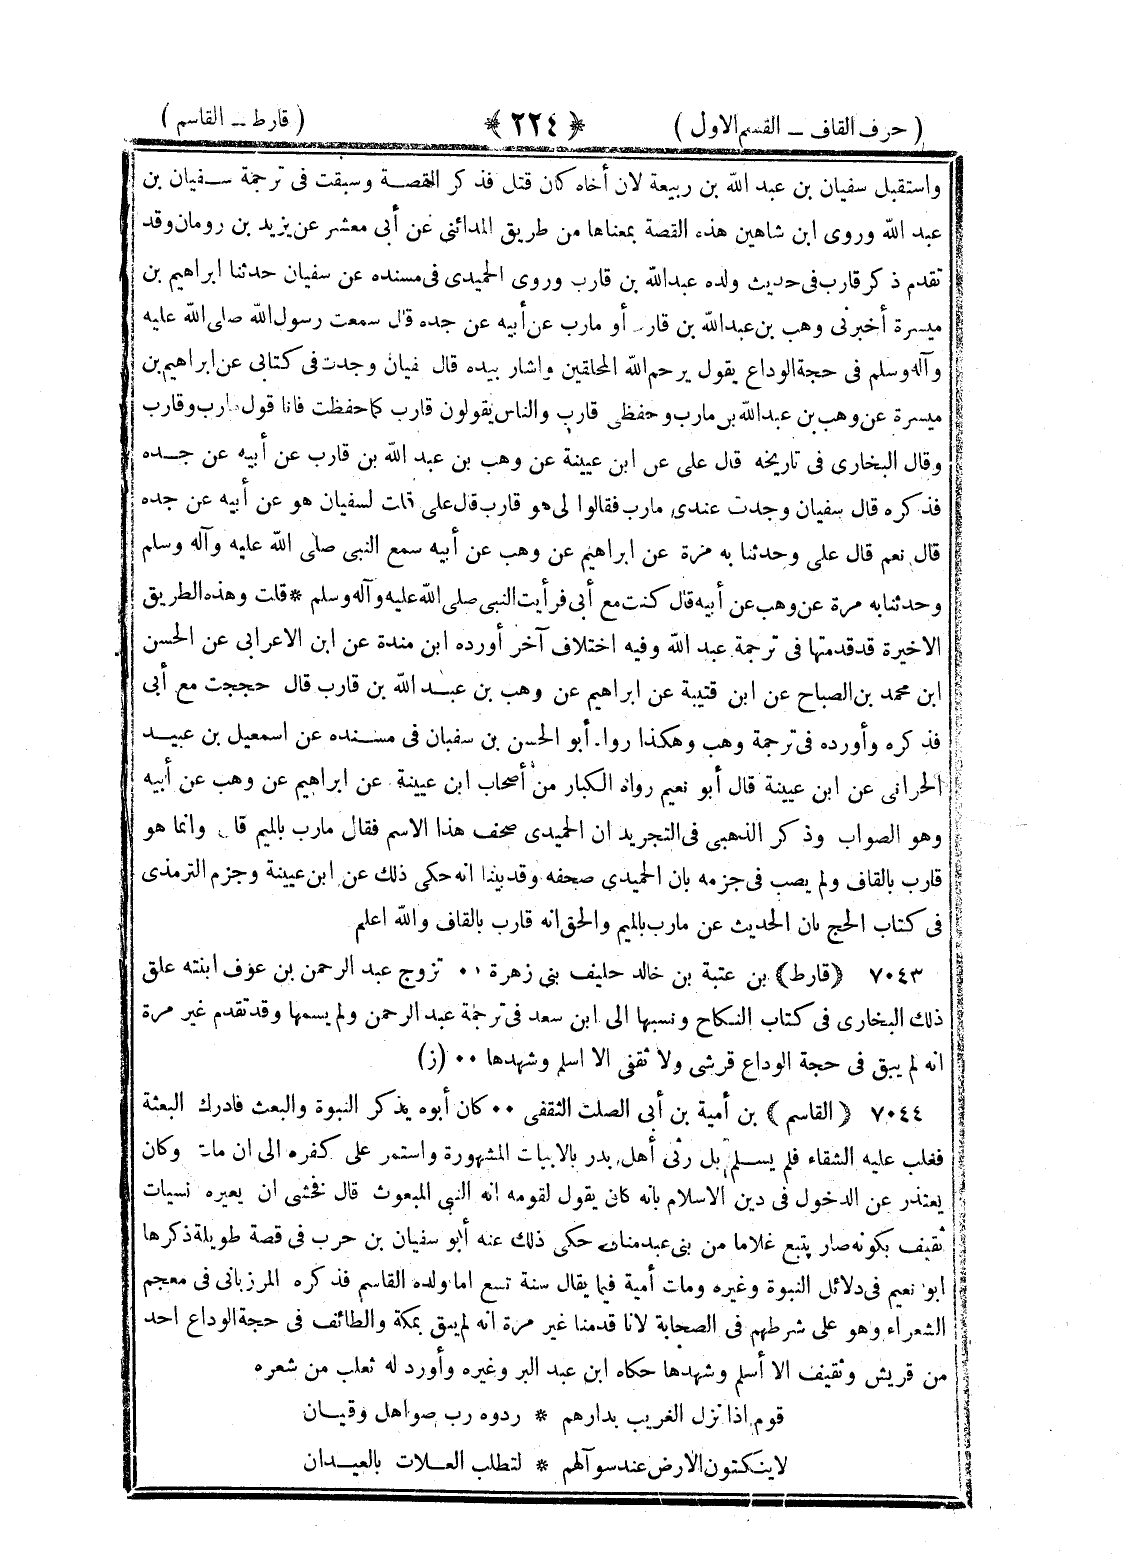 ( حرف القاف ــ القسم الاول ) ﴿ ٢٢٤ ﴾ ( قارط ــ القاسم )
واستقبل سفيان بن عبد الله بن ربيعة لان أخاه كان قتل فذكر القصة وسبقت فى ترجمة سفيان بن
عبد الله وروى ابن شاهين هذه القصة بمعناها من طريق المدائنى عن أبى معشر عن يزيد بن رومان وقد
تقدم ذكر قارب فى حديث ولده عبدالله بن قارب وروى الحميدى فى مسنده عن سفيان حدثنا ابراهيم بن
ميسرة أخبرنى وهب بن عبدالله بن قارب أو مارب عن أبيه عن جده قال سمعت رسول الله صلى الله عليه
وآله وسلم فى حجة الوداع يقول يرحم الله المحلقين واشار بيده قال سفيان وجدت فى كتابى عن ابراهيم بن
ميسرة عن وهب بن عبدالله بن مارب وحفظى قارب والناس يقولون قارب كما حفظت فانا قول مارب وقارب
وقال البخارى فى تاريخه قال على عن ابن عيينة عن وهب بن عبد الله بن قارب عن أبيه عن جده
فذكره قال سفيان وجدت عندى مارب فقالوا لى هو قارب قال على قلت لسفيان هو عن أبيه عن جده
قال نعم قال على وحدثنا به مرة عن ابراهيم عن وهب عن أبيه سمع النبى صلى الله عليه وآله وسلم
وحدثنا به مرة عن وهب عن أبيه قال كنت مع أبى فرأيت النبى صلى الله عليه وآله وسلم * قلت وهذه الطريق
الاخيرة قد قدمتها فى ترجمة عبد الله وفيه اختلاف آخر أورده ابن مندة عن ابن الاعرابى عن الحسن
ابن محمد بن الصباح عن ابن قتيبة عن ابراهيم عن وهب بن عبد الله بن قارب قال حججت مع أبى
فذكره وأورده فى ترجمة وهب وهكذا رواه أبو الحسن بن سفيان فى مسنده عن اسمعيل بن عبيد
الحرانى عن ابن عيينة قال أبو نعيم رواه الكبار من أصحاب ابن عيينة عن ابراهيم عن وهب عن أبيه
وهو الصواب وذكر الذهبى فى التجريد ان الحميدى صحف هذا الاسم فقال مارب بالميم قال وانما هو
قارب بالقاف ولم يصب فى جزمه بان الحميدى صحفه وقد بينا انه حكى ذلك عن ابن عيينة وجزم الترمذى
فى كتاب الحج بان الحديث عن مارب بالميم والحق انه قارب بالقاف والله اعلم
٧٠٤٣ ﴿قارط﴾ بن عتبة بن خالد حليف بنى زهرة ٠٠ تزوج عبد الرحمن بن عوف ابنته علق
ذلك البخارى فى كتاب النكاح ونسبها الى ابن سعد فى ترجمة عبد الرحمن ولم يسمها وقد تقدم غير مرة
انه لم يبق فى حجة الوداع قرشى ولا ثقفى الا اسلم وشهدها ٠٠ (ز)
٧٠٤٤ ﴿القاسم﴾ بن أمية بن أبى الصلت الثقفى ٠٠ كان أبوه يذكر النبوة والبعث فادرك البعثة
فغلب عليه الشقاء فلم يسلم بل رثى أهل بدر بالابيات المشهورة واستمر على كفره الى ان مات وكان
يعتذر عن الدخول فى دين الاسلام بانه كان يقول لقومه انه النبى المبعوث قال فخشى ان يعيره نسيات
ثقيف بكونه صار يتبع غلاما من بنى عبد مناف حكى ذلك عنه أبو سفيان بن حرب فى قصة طويلة ذكرها
ابو نعيم فى دلائل النبوة وغيره ومات أمية فيما يقال سنة تسع اما ولده القاسم فذكره المرزبانى فى معجم
الشعراء وهو على شرطهم فى الصحابة لانا قدمنا غير مرة انه لم يبق بمكة والطائف فى حجة الوداع احد
من قريش وثقيف الا أسلم وشهدها حكاه ابن عبد البر وغيره وأورد له ثعلب من شعره
قوم اذا نزل الغريب بدارهم * ردوه رب صواهل وقيان
لا ينكتون الارض عند سوآلهم * لتطلب العلات بالعيدان